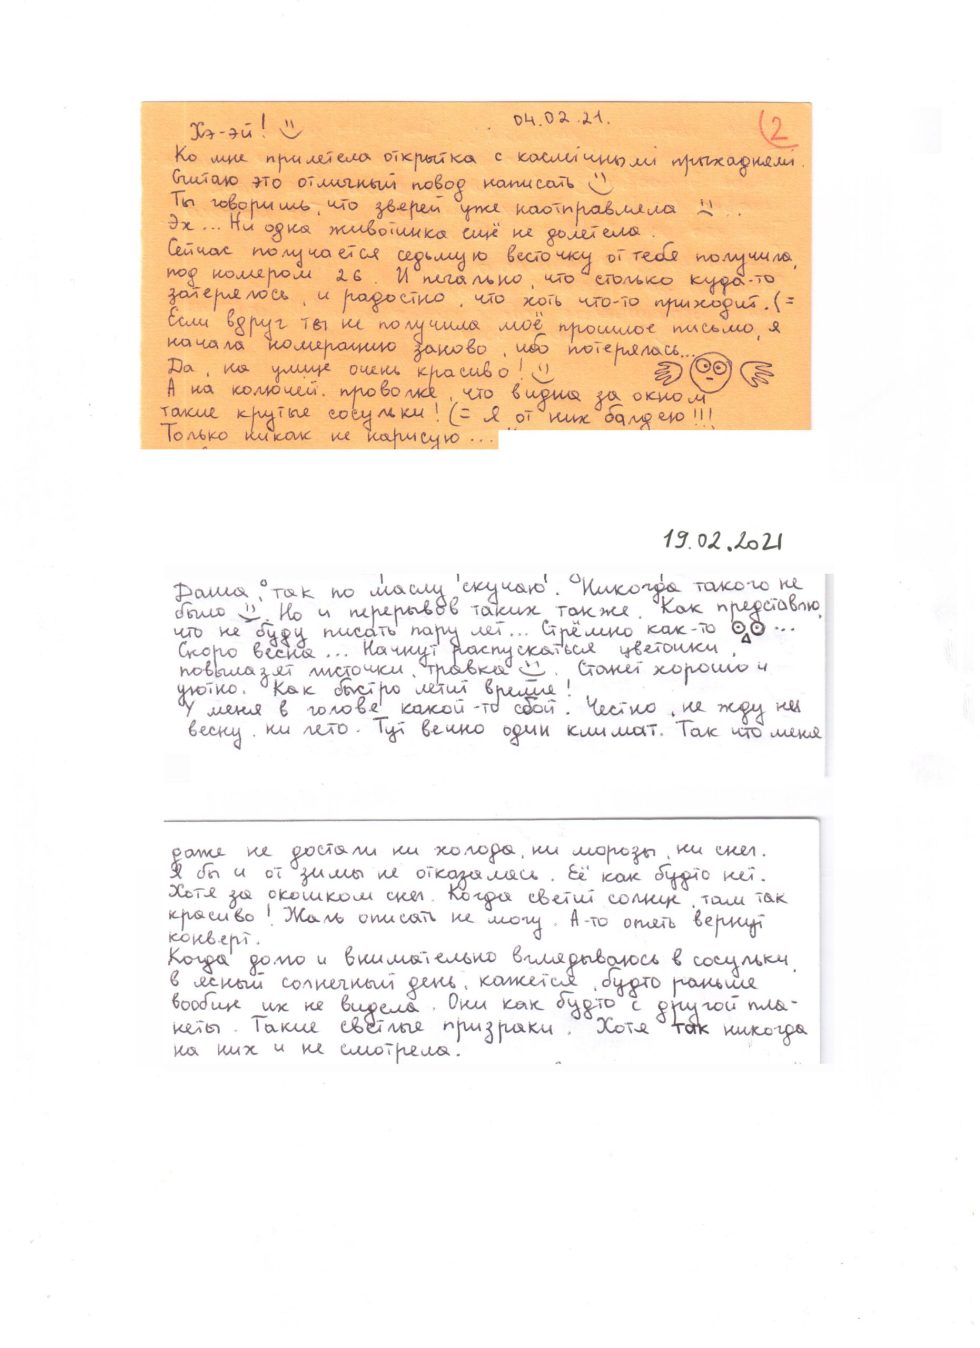 04.02.21.
2
Хэ-эй!
Ко мне прилетела открытка с касмічнымі прыхаднямі.
Считаю это отличный повод написать
Ты говоришь, что зверей уже наотправляла ...
Эх... Ни одна животинка ещё не долетела.
Сейчас получается седьмую весточку от тебя получила,
под номером 26. И печально, что столько куда-то
затерялось, и радостно, что хоть что-то приходит. (=
Если вдруг ты не получила моё прошлое письмо, я
начала номерацию заново, ибо потерялась...
Да, на улице очень красиво!
А на колючей проволке, что видна за окном
такие крутые сосульки! (= Я от них балдею!!!
Только никак не нарисую...
19.02.2021
Даша, так по маслу скучаю! Никогда такого не
было Но и перерывов таких также. Как представлю,
что не буду писать пару лет... Стрёмно как-то ...
Скоро весна... Начнут распускаться цветочки,
повылазят листочки, травка. Станет хорошо и
уютно. Как быстро летит время!
У меня в голове какой-то сбой. Честно, не жду ни
весну, ни лето. Тут вечно один климат. Так что меня
даже не достали ни холода, ни морозы, ни снег.
Я бы и от зимы не отказалась. Её как будто нет.
Хотя за окошком снег. Когда светит солнце, там так
красиво! Жаль описать не могу. А-то опять вернут
конверт.
Когда долго и внимательно вглядываюсь в сосульки,
в ясный солнечный день, кажется, будто раньше
вообще их не видела. Они как будто с другой пла-
неты. Такие светлые призраки. Хотя так никогда
на них и не смотрела.